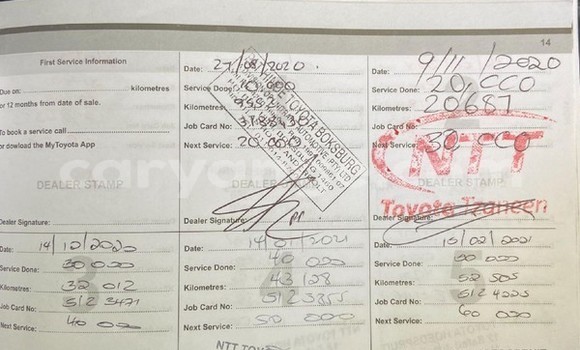 14
First Service Information
Due on: kilometres
or 12 months from date of sale.
To book a service call
or dowload the MyToyota App
DEALER STAMP
Dealer Signature:
Date: 27/08/2020
Service Done: 10 000
Kilometres: 9992
Job Card No:
Next Service: 20 000
TOYOTA BOKSBURG
DEALER STAMP
Dealer Signature:
Date: 9/11/2020
Service Done: 20,000
Kilometres: 20,687
Job Card No:
Next Service: 30 000
NTT
Toyota Tzaneen
Dealer Signature:
Date: 14/12/2020
Service Done: 30 000
Kilometres: 32 012
Job Card No: 512 3471
Next Service: 40 000
Date: 14/01/2021
Service Done: 40 000
Kilometres: 43 128
Job Card No: 512 3855
Next Service: 50 000
Date: 15/02/2021
Service Done: 50 000
Kilometres: 52 505
Job Card No: 512 4225
Next Service: 60 000